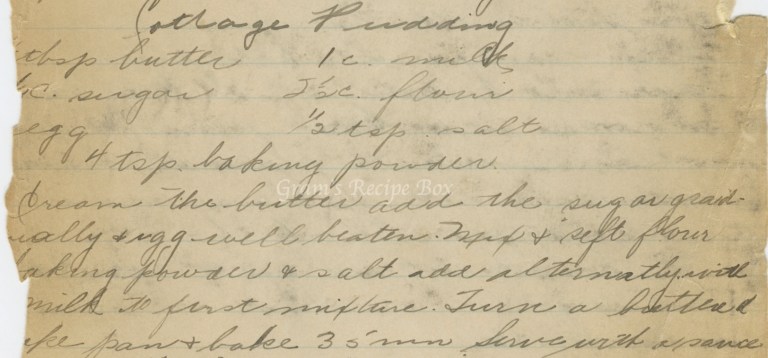 Cottage Pudding
tbsp butter 1 c. milk
½c. sugar 2½c. flour
egg ½ tsp. salt
4 tsp. baking powder.
Gram's Recipe Box
Cream the butter add the sugar grad-
ually & egg well beaten. Mix & sift flour
baking powder & salt add alternatly with
milk to first mixture. Turn a buttered
ake pan & bake 35 min Serve with a sauce